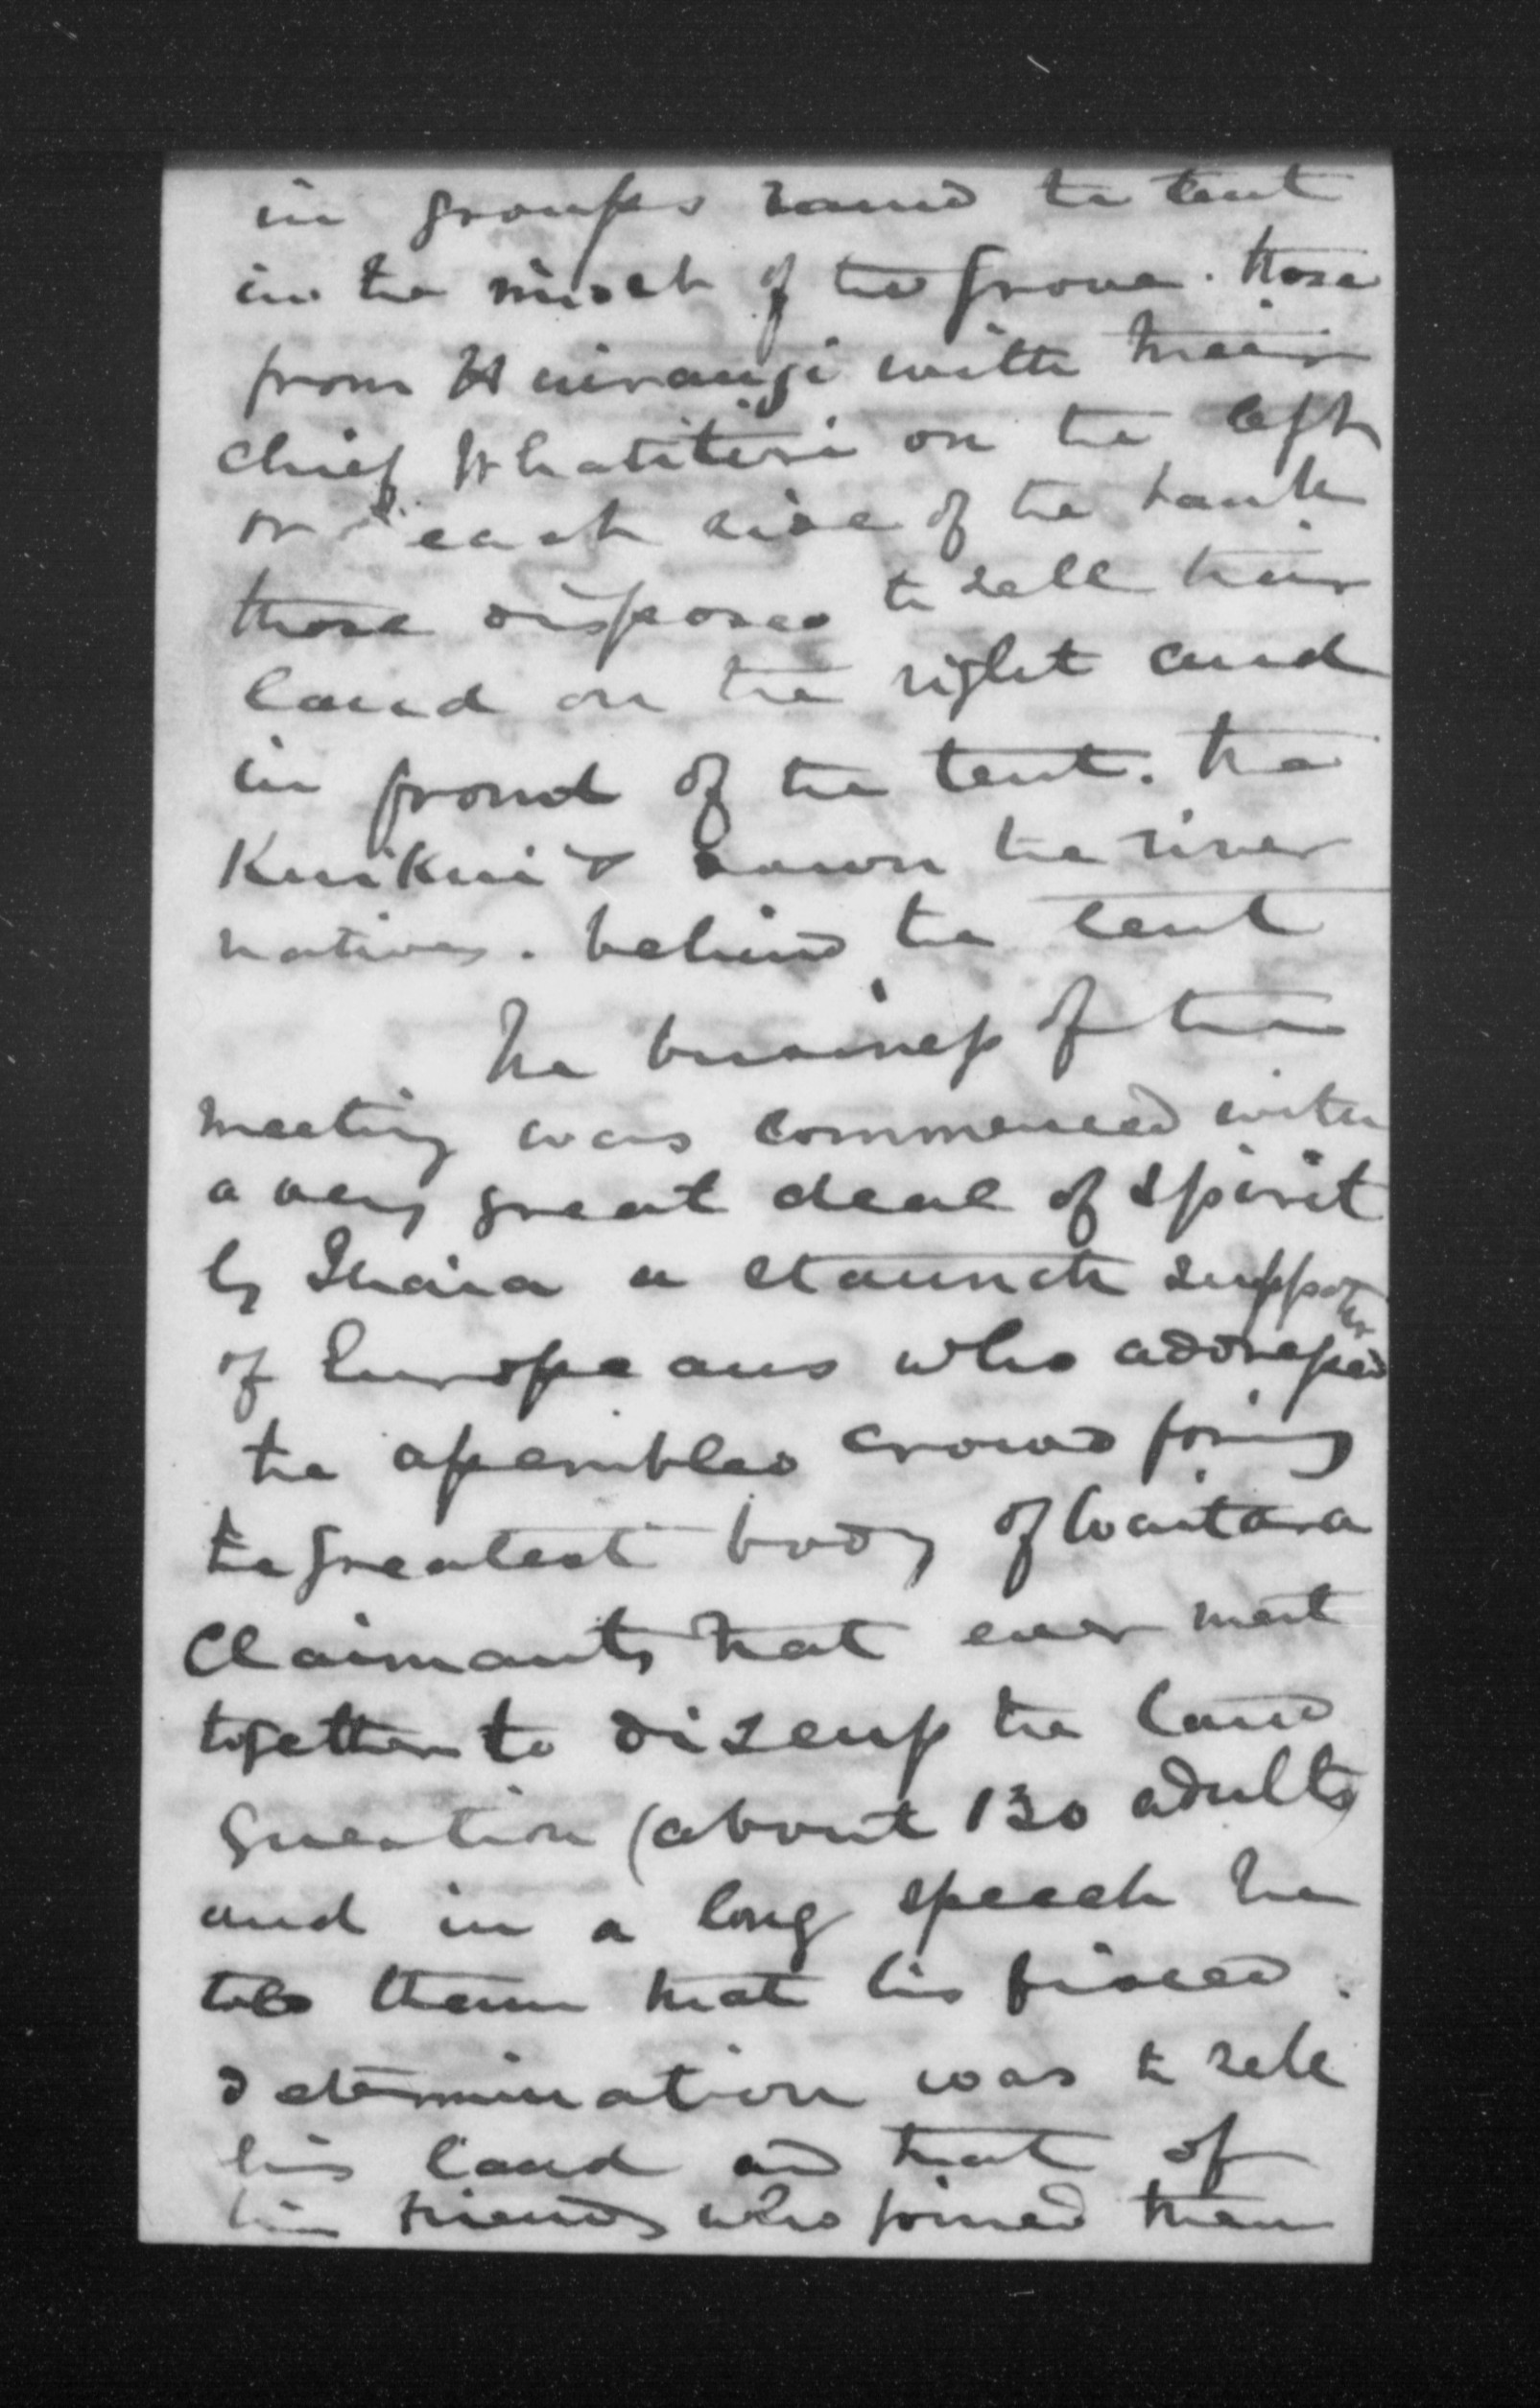 in groups round the tent
in the midst of the grove. those
from Huirangi with their
chief Whatitiri on the left
or each side of the bank
those disposed to sell their
land on the right and
in front of the tent. the
Kuikui & down the river
natives. behind the tent
The business of the
meeting was commenced with
a very great deal of spirit
by Ihaia a staunch supporter
of Europeans who addressed
the assembled crowd forming
the greatest body of Waitara
Claimants that ever met
together to discuss the land
question (about 130 adults)
and in a long speech he
told them that his fixed
determination was to sell
his land and that of
his friends who joined them